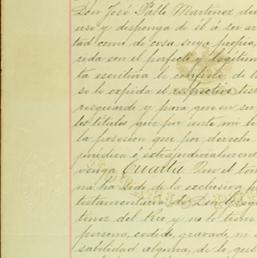 Don José Pablo Martinez de
uso y disponga de él ó su ar
tad como de cosa suya propia,
rida con el perfecto y legítim
ta escritura le confiere de l
se le expida el respectivo test
resguardo y para que en ser
los títulos que por ante mi
la posesion que por derecho
jurídica ó extrajudicialmente
venga Cuarta Que el
na ha sido de la exclusiva
testamentaria de Don
tinez del Rio y no lo tiene
persona, cedido, gravado, ni
sabilidad alguna, de lo que